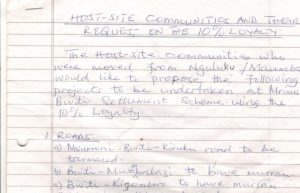 HOST-SITE COMMUNITIES AND THEIR
REQUEST ON THE 10% LOYALTY
The Host-site Communities who
were moved from Nguluku/Maumba
would like to propose the following
projects to be undertaken at Mrima
Bwiti Settlement Scheme using the
10% Loyalty.
1. ROADS
a) Mwumoni - Bwiti - Kiruku road to be
tarmaced.
b) Bwiti - to have murram
c) Bwiti - Kigombero to have murram